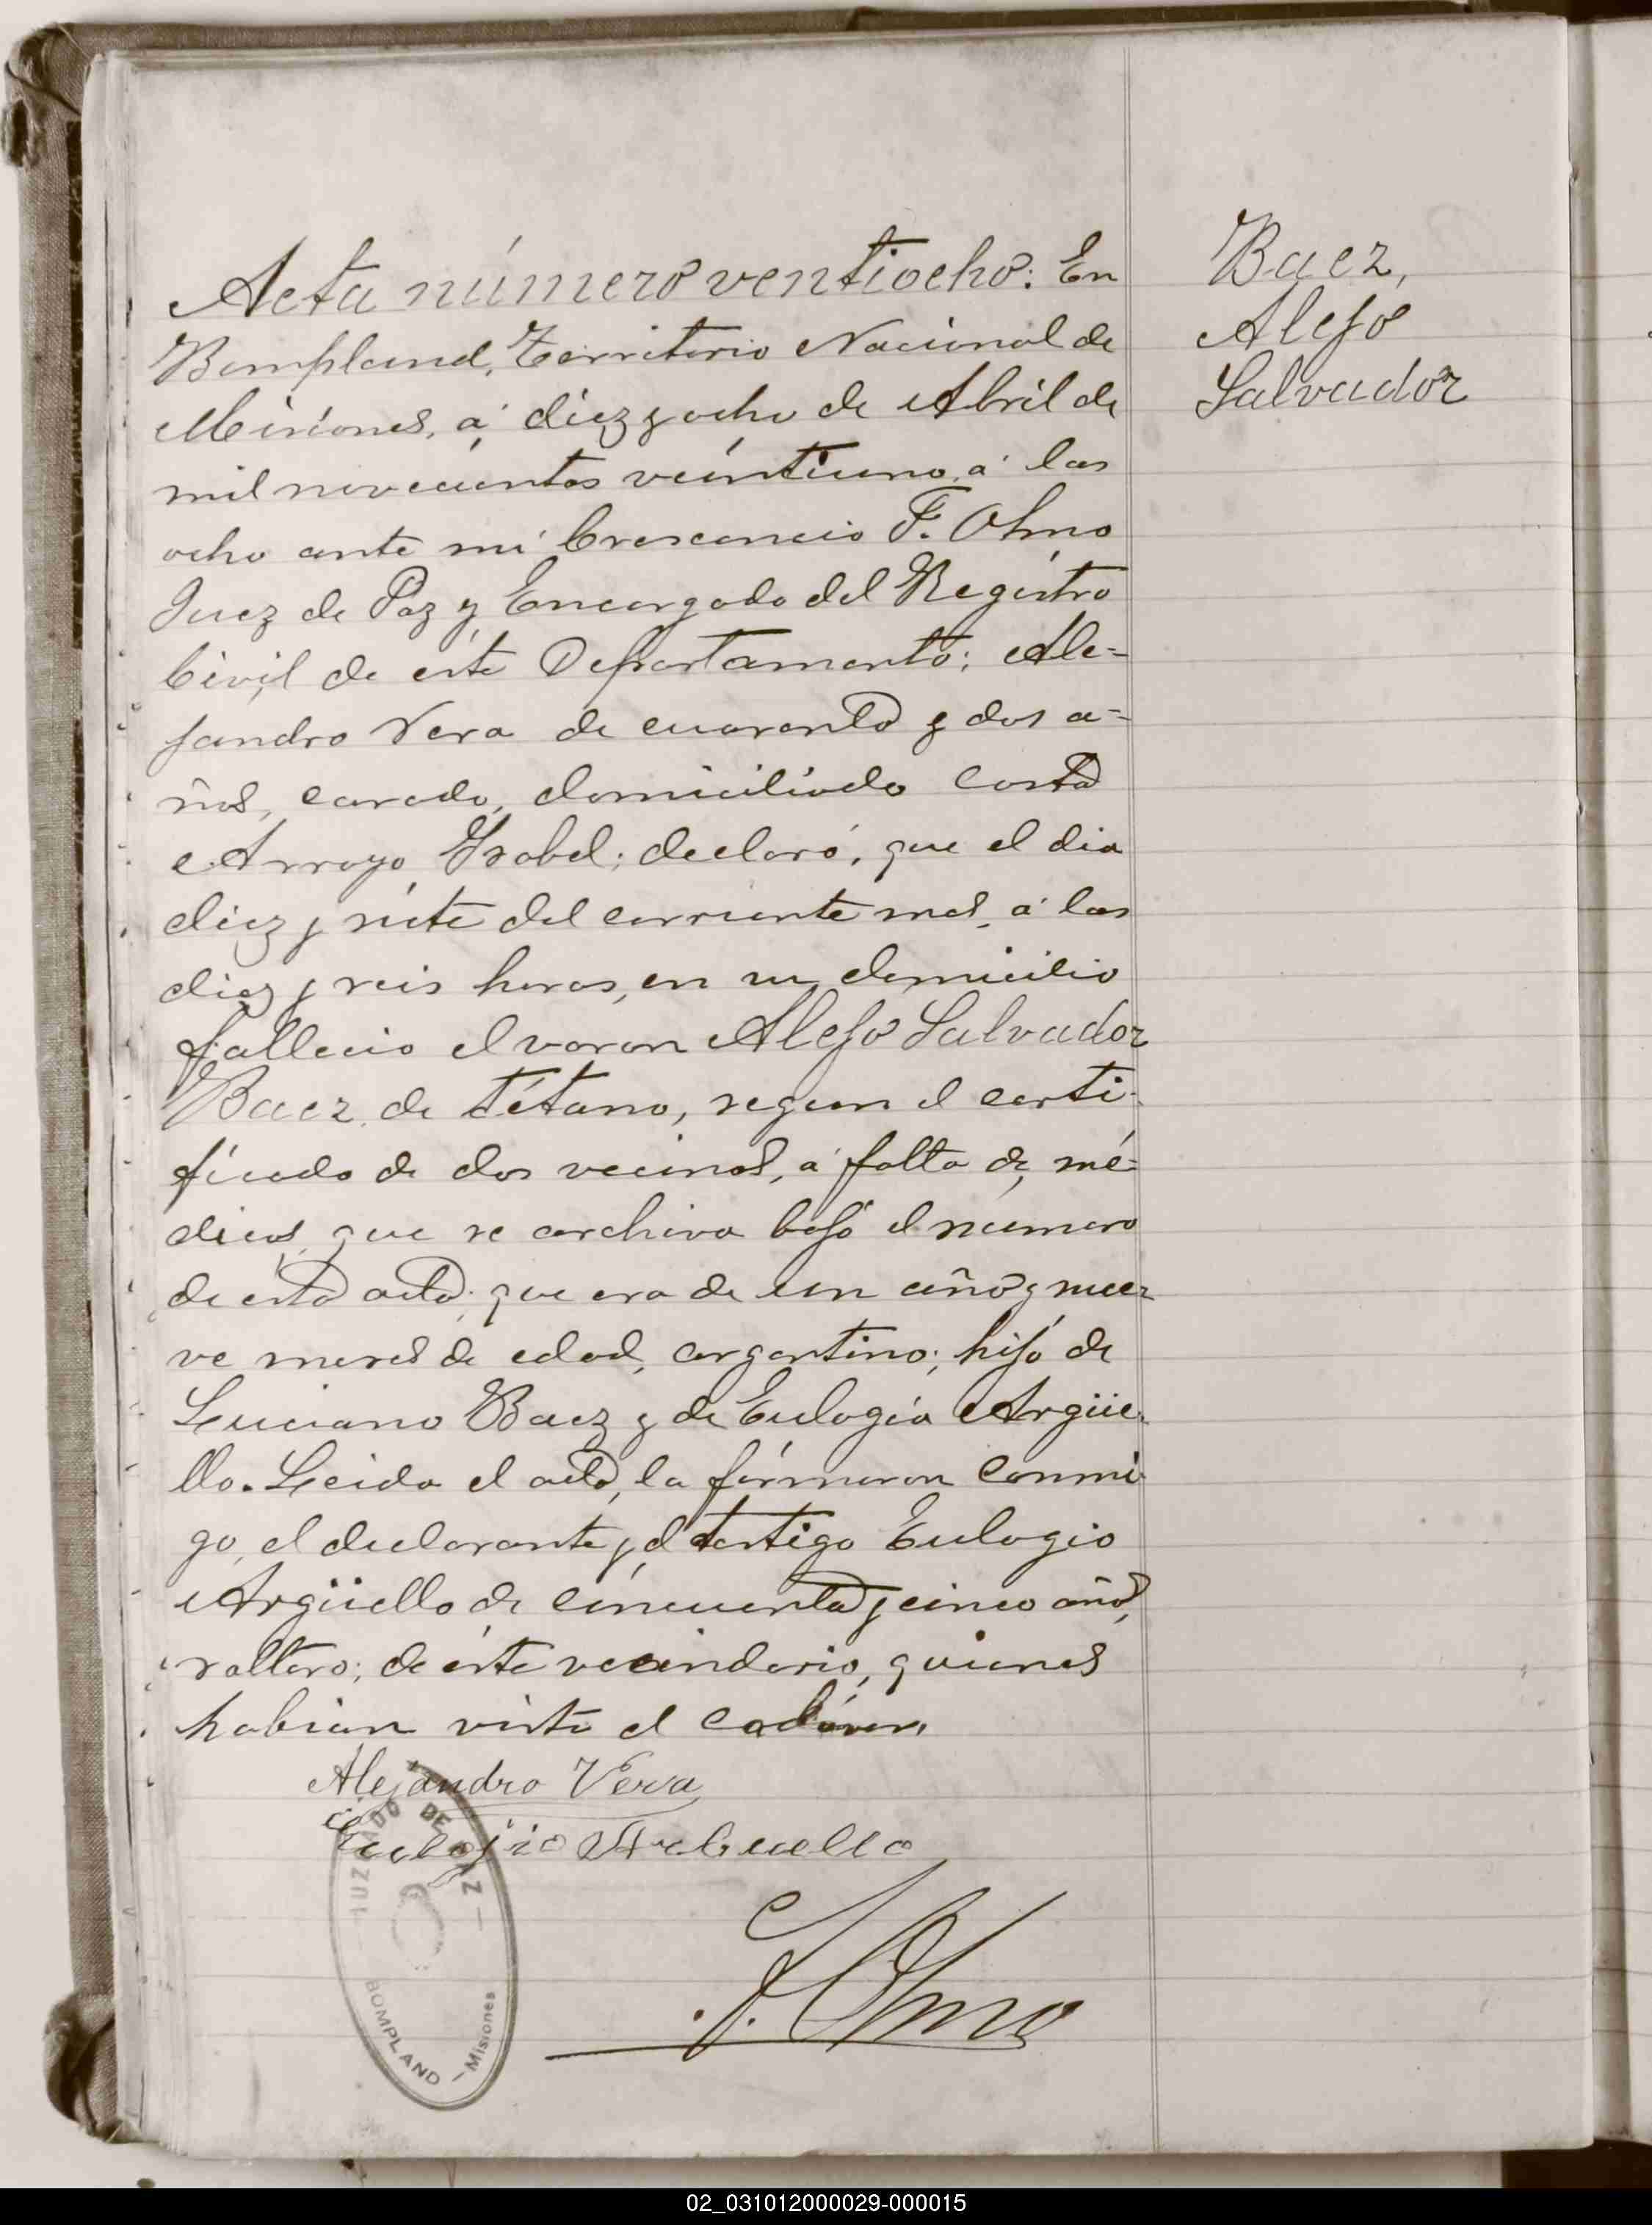 Acta número ventiocho: En
Bompland, Territorio Nacional de
Misiones, á diez y ocho de Abril de
mil novecientos veintiuno, á las
ocho ante mi Crescencio F. Olmo
Juez de Paz y Encargado del Registro
Civil de éste Departamento; Ale=
jandro Vera de cuarenta y dos a=
ños, casado, domiciliado Costa
Arroyo Isabel; declaró, que el dia
diez y siete del corriente mes, á las
diez y seis horas, en su domicilio
fallecio el varon Alejo Salvador
Baez, de tétano, segun el certi-
ficado de dos vecinos, á falta de mé=
dicos, que se archiva bajo el número
de esta acta; que era de un año y nue=
ve meses de edad, argentino; hijo de
Luciano Baez y de Eulogia Argüe-
llo. Leida el acta, la firmaron conmi-
go, el declarante y el testigo Eulogio
Argüello de cincuenta y cinco años,
soltero; de éste vecindario, quienes
habian visto el cadáver.
Baez,
Alejo
Salvador
Alejandro Vera
Eulojio Arbuello
F. Olmo
JUZGADO DE PAZ
BOMPLAND - Misiones
02_031012000029-000015